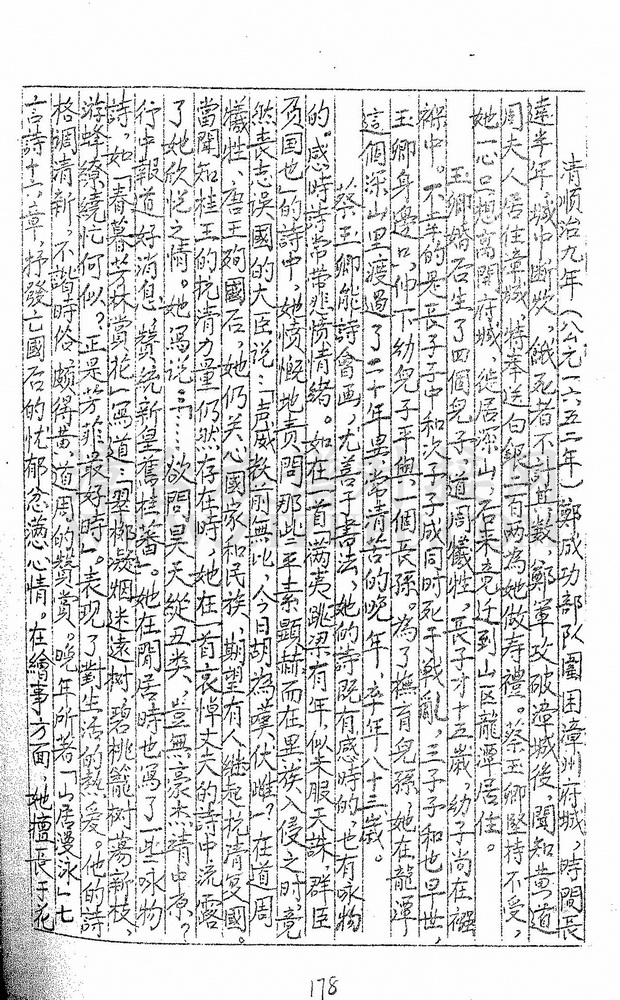 清顺治九年(公元一六五二年)鄭成功部队圍困漳州府城,時間長
達半年,城中断炊,餓死者不計其數,鄭軍攻破漳城後,聞知黄道
周夫人居住漳城,特奉送白銀二百两為她做寿禮。蔡玉卿堅持不受,
她一心只想离開府城,徙居深山,后来竟迁到山区龍潭居住。
玉卿婚后生了四個兒子,道周犧牲,長子才十五歲,幼子尚在襁
褓中。不幸的是長子子中和次子子成同時死于戰亂,三子子和也早世,
玉卿身邊只仂下幼兒子平與一個長孫。為了撫育兒孫,她在龍潭
這個深山里度過了二十年異常清苦的晚年,卒年八十三歲。
蔡玉卿能詩會画,尤善于書法,她的詩既有感時的,也有咏物
的。感時詩常带悲憤情緒。如在一首「满夷跳梁有年,似未服天誅,群臣
負国也」的詩中,她愤慨地責問那些平素顯赫而在異族入侵之时,竟
然丧志误國的大臣说:「声威数前無比,今日胡為嘆伏雌?」在道周
犧牲、唐王殉國后,她仍关心國家和民族,期望有人継起抗清复國。
當聞知桂王的抗清力量仍然存在時,她在一首哀悼丈夫的詩中流露
了她欣悦之情。她寫说:「……欲問昊天縱丑类,豈無豪杰靖中原?
行中報道好消息,贊統新皇舊桂蕃」。她在閒居時也寫了一些咏物
詩,如「春暮芳林賞花」寫道:「翠柳凝烟迷遠树,碧桃籠树蕩新枝,
游蜂繚繞忙何似?正是芳菲最好時」。表现了對生活的熱爱。他的詩
格调清新,不諧時俗,颇得黄道周的贊赏。晚年所著「山居漫泳」七
言詩十六章,抒發亡國后的忧郁忿懑心情。在繪事方面,她擅長于花
178